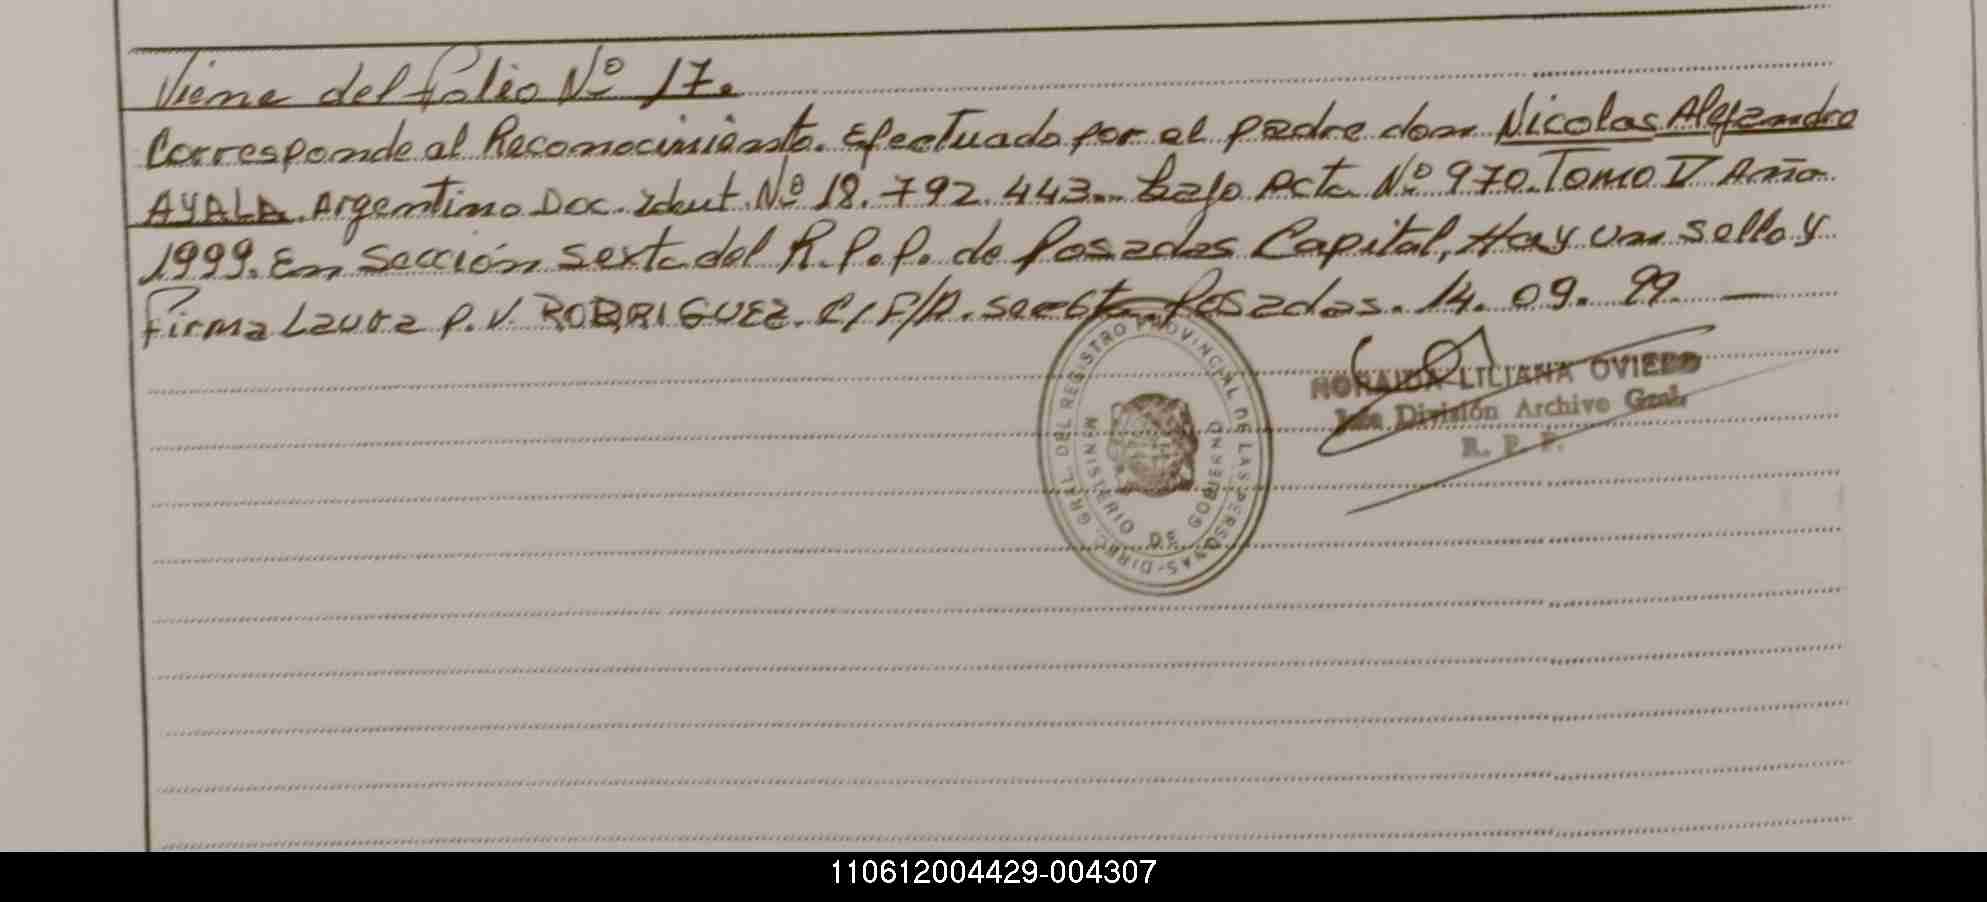 Viene del folio Nº 17.
Corresponde al Reconocimiento. Efectuado por el padre don Nicolas Alejandro
AYALA. Argentino Doc. Ident. Nº 18.792.443.. bajo Acta Nº 970. Tomo V Año
1999. En Sección sexta del R.P.P. de Posadas Capital, Hay un sello y
firma Laura P.V. RODRIGUEZ. C/F/A. Posadas. 14. 09. 99. —
DIREC. GRAL. DEL REGISTRO PROVINCIAL DE LAS PERSONAS-
MINISTERIO DE GOBIERNO
NORAIDA LILIANA OVIEDO
Jefe División Archivo Gral.
R. P. P.
110612004429-004307